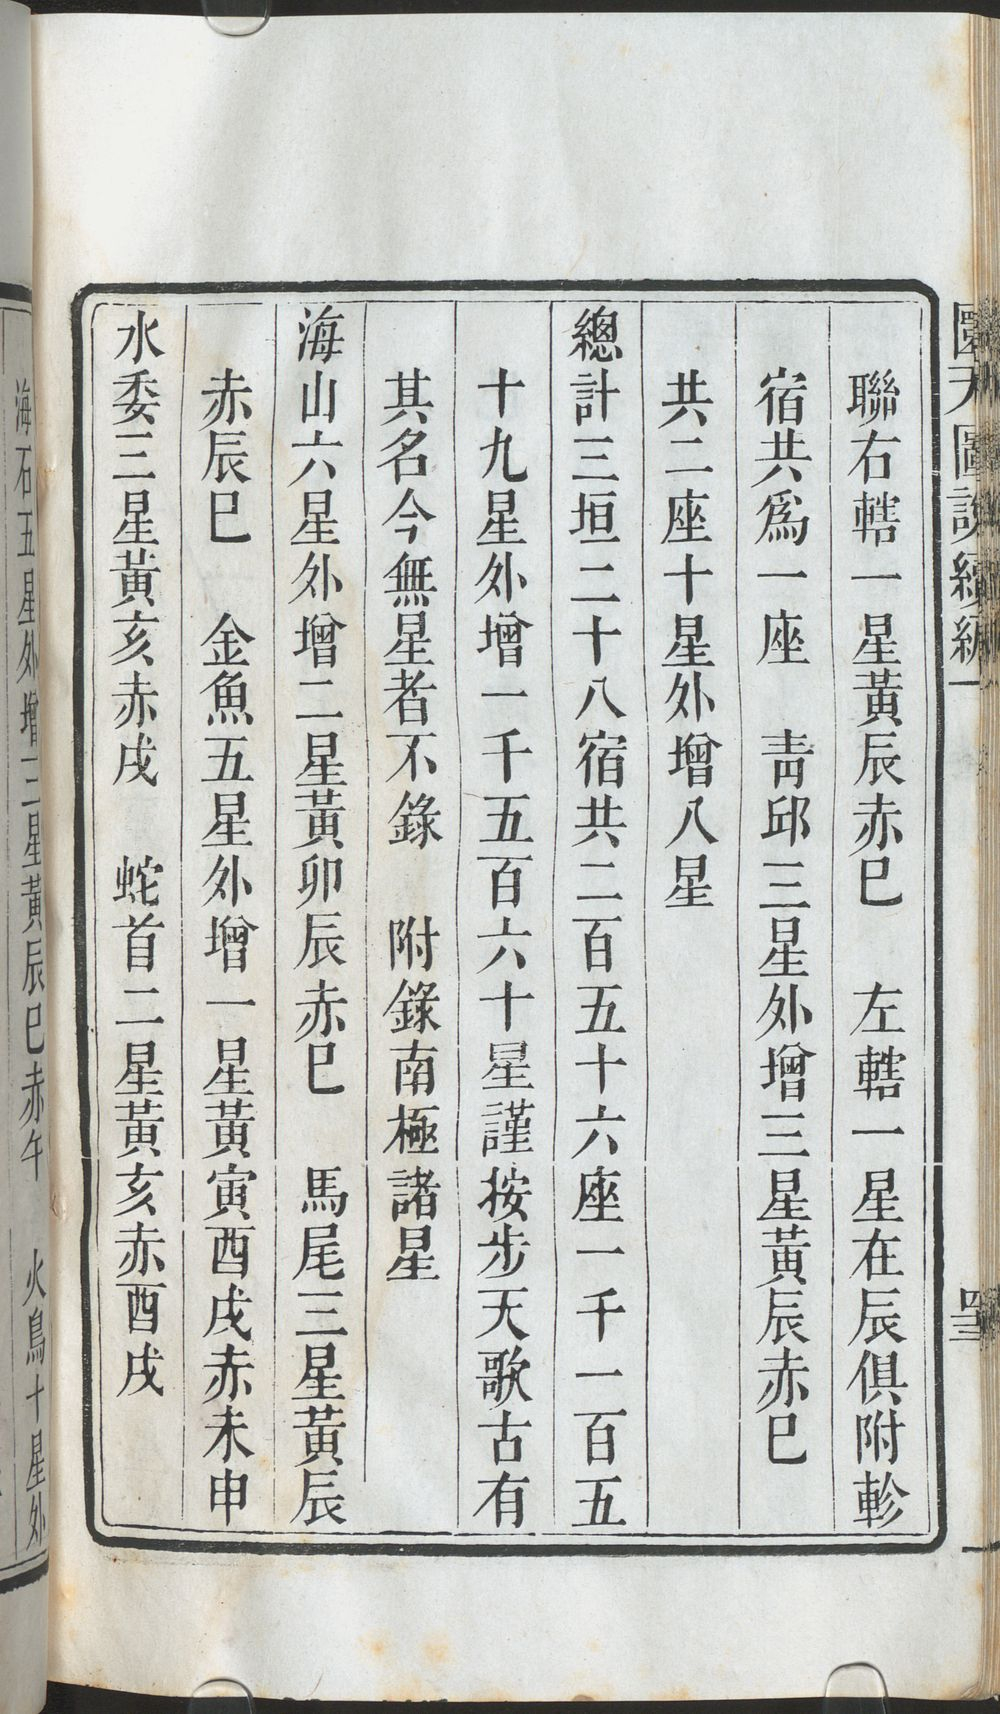 圜天圖説續編一
四三
聯右轄一星黃辰赤巳　左轄一星在辰俱附軫
宿共爲一座　靑邱三星外增三星黃辰赤巳
共二座十星外增八星
總計三垣二十八宿共二百五十六座一千一百五
十九星外增一千五百六十星謹按步天歌古有
其名今無星者不錄　附錄南極諸星
海山六星外增二星黃卯辰赤巳　馬尾三星黃辰
赤辰巳　金魚五星外增一星黃寅酉戌赤未申
水委三星黃亥赤戌　蛇首二星黃亥赤酉戌
海石五星外增三星黃辰巳赤午　火鳥十星外